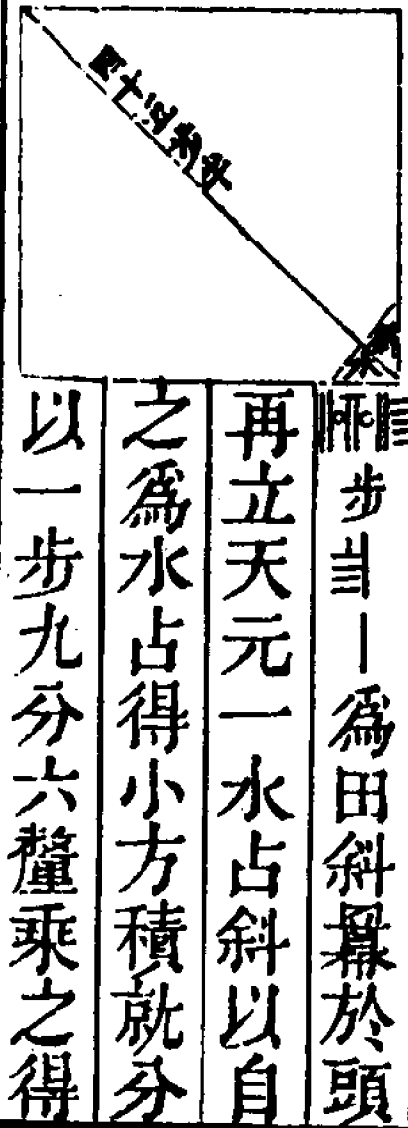 步 𝍠 爲田斜羃於頭
再立天元一水占斜以自
之爲水占得小方積就分
以一步九分六釐乘之得